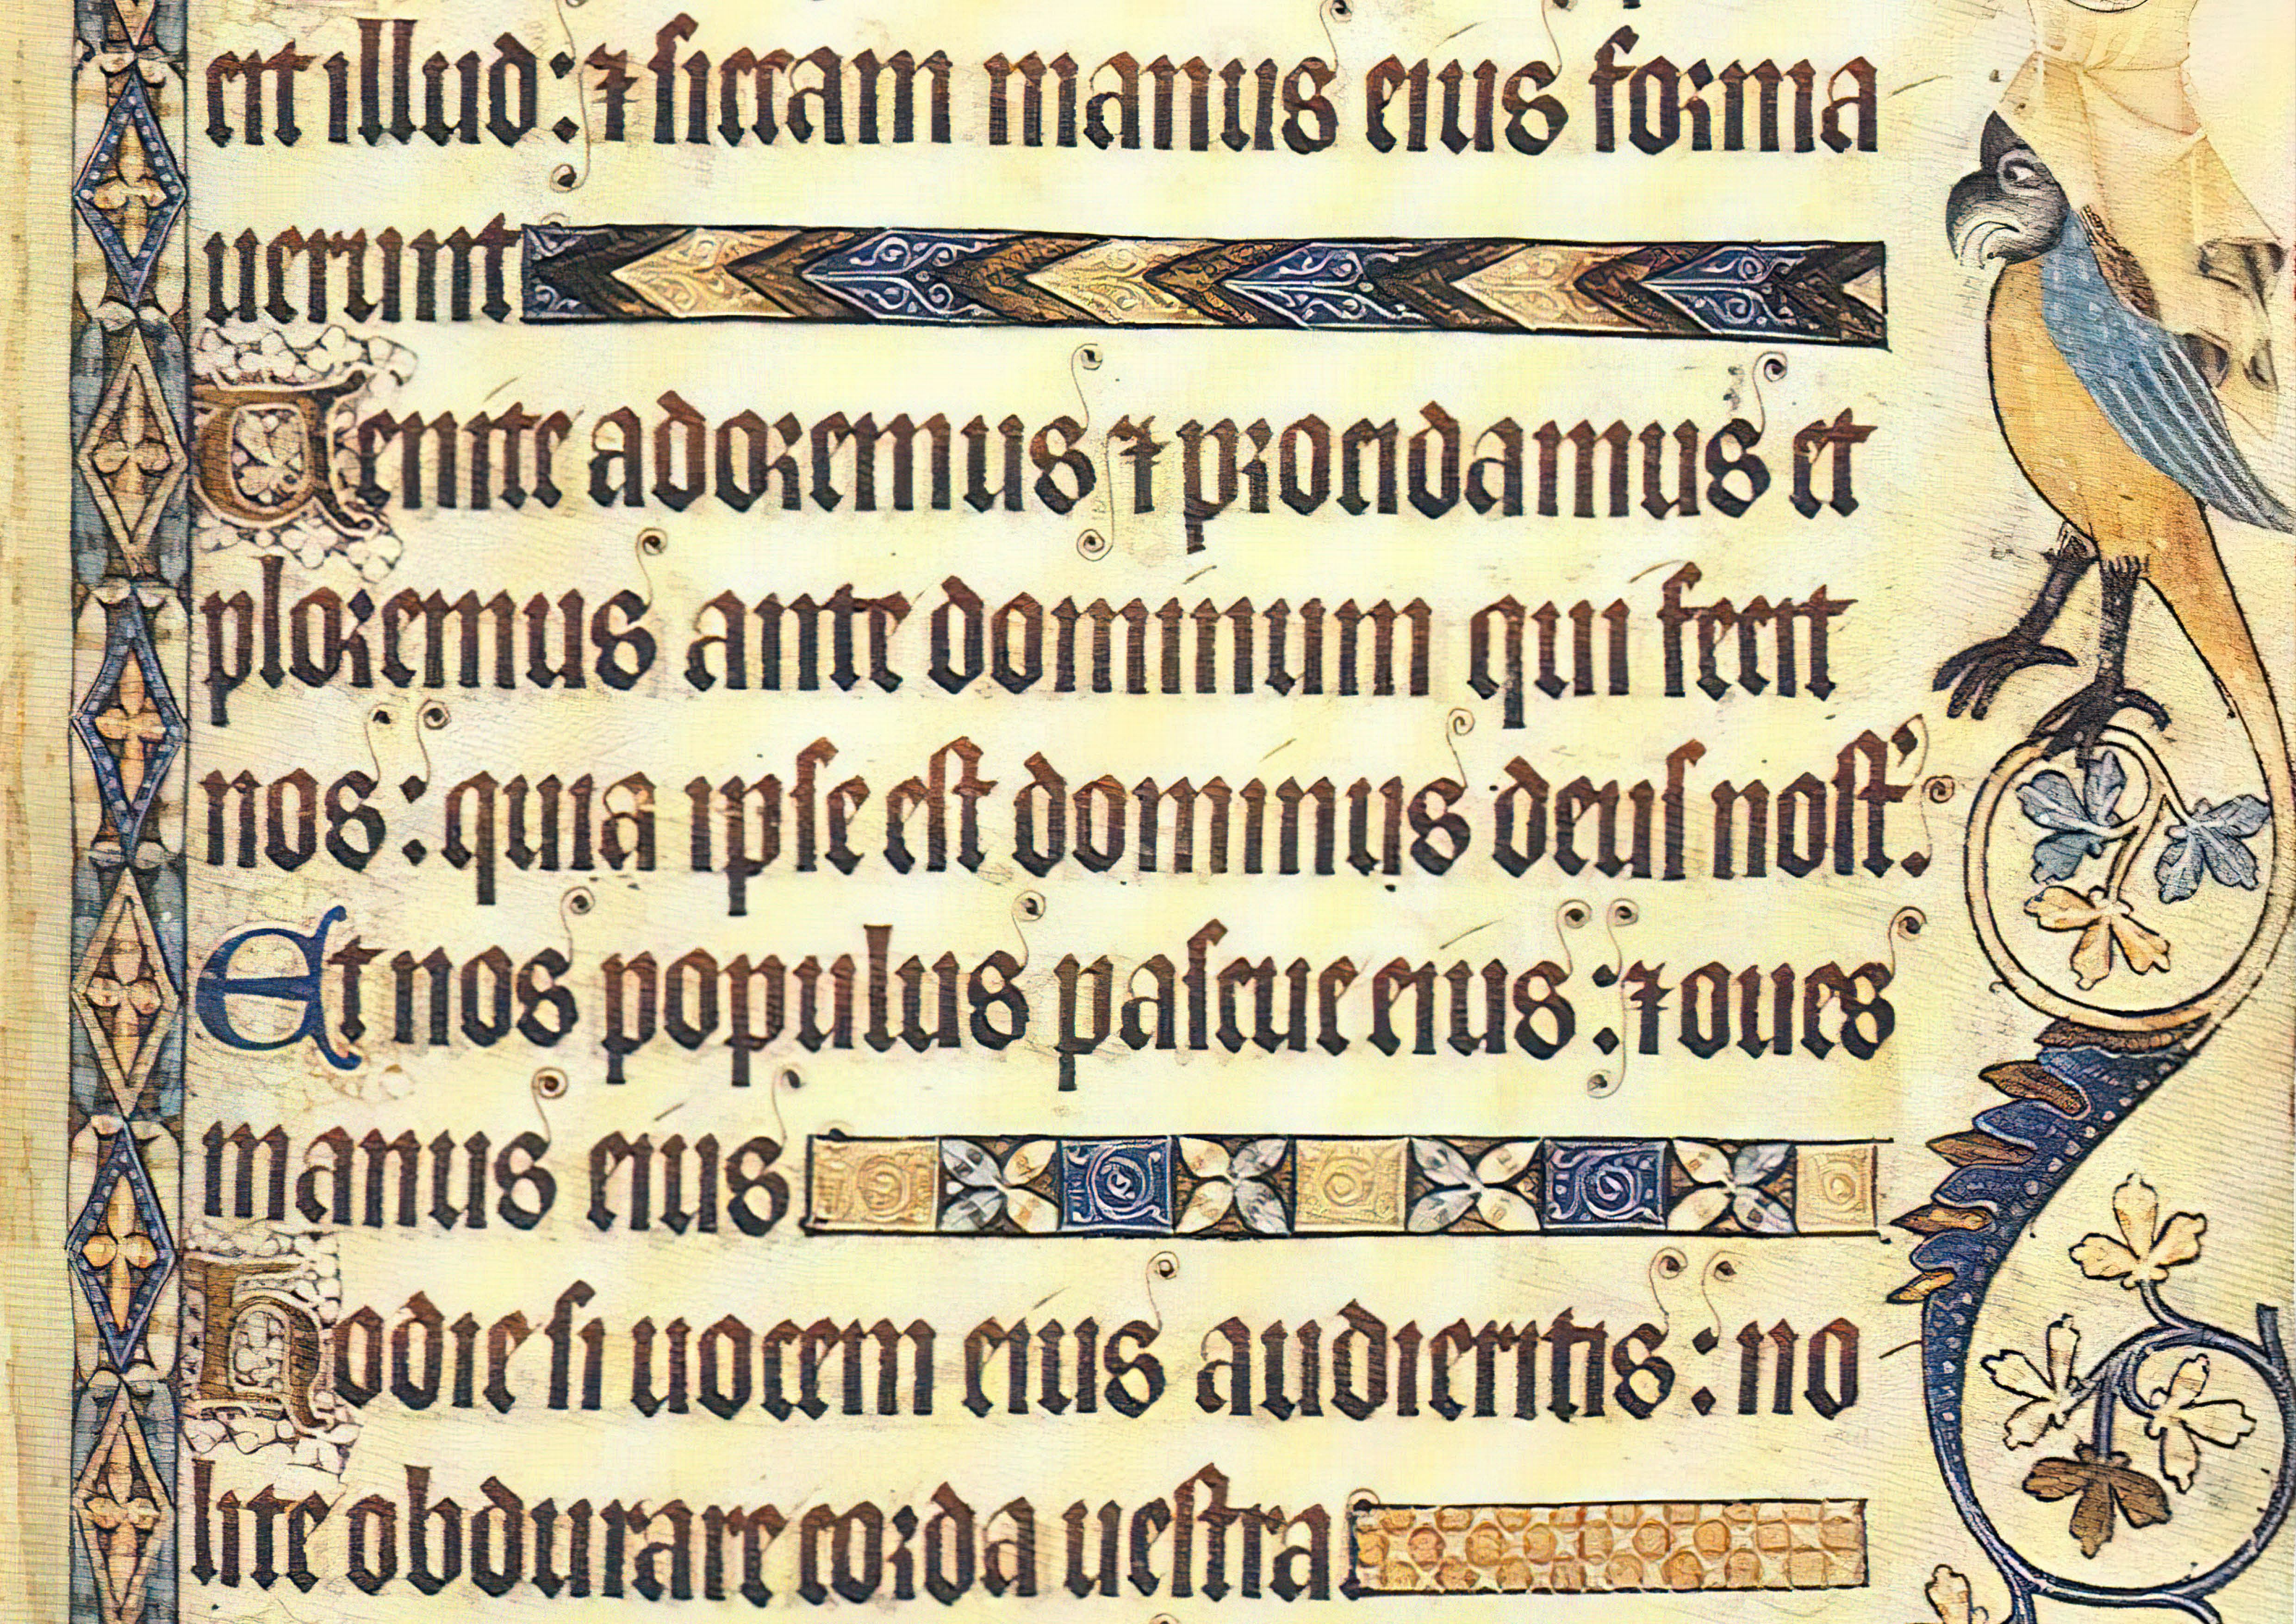 cit illud: ⁊ siccam manus eius forma
uerunt
Uenite adoremus ⁊ procidamus et
ploremus ante dominum qui fecit
nos: quia ipse est dominus deus nost'.
Et nos populus pascue eius: ⁊ oues
manus eius.
Hodie si uocem eius audieritis: no
lite obdurare corda uestra.